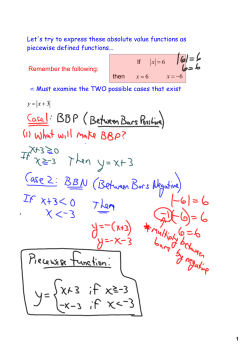 Let's try to express these absolute value functions as
piecewise defined functions...
Remember the following:
If |x| = 6 |6| = 6
then x = 6 x = -6 6 = 6
Must examine the TWO possible cases that exist
y = |x + 3|
Case 1: BBP (Between Bars Positive)
(i) What will make BBP?
x+3 ≥ 0
If x ≥ -3 Then y = x+3
Case 2: BBN (Between Bars Negative)
If x+3 < 0 Then |-6| = 6
x < -3 -1(-6) = 6
y = -(x+3) 6 = 6
y = -x-3 *multiply between
bars by negative
Piecewise Function:
y = { x+3 if x ≥ -3
-x-3 if x < -3
1